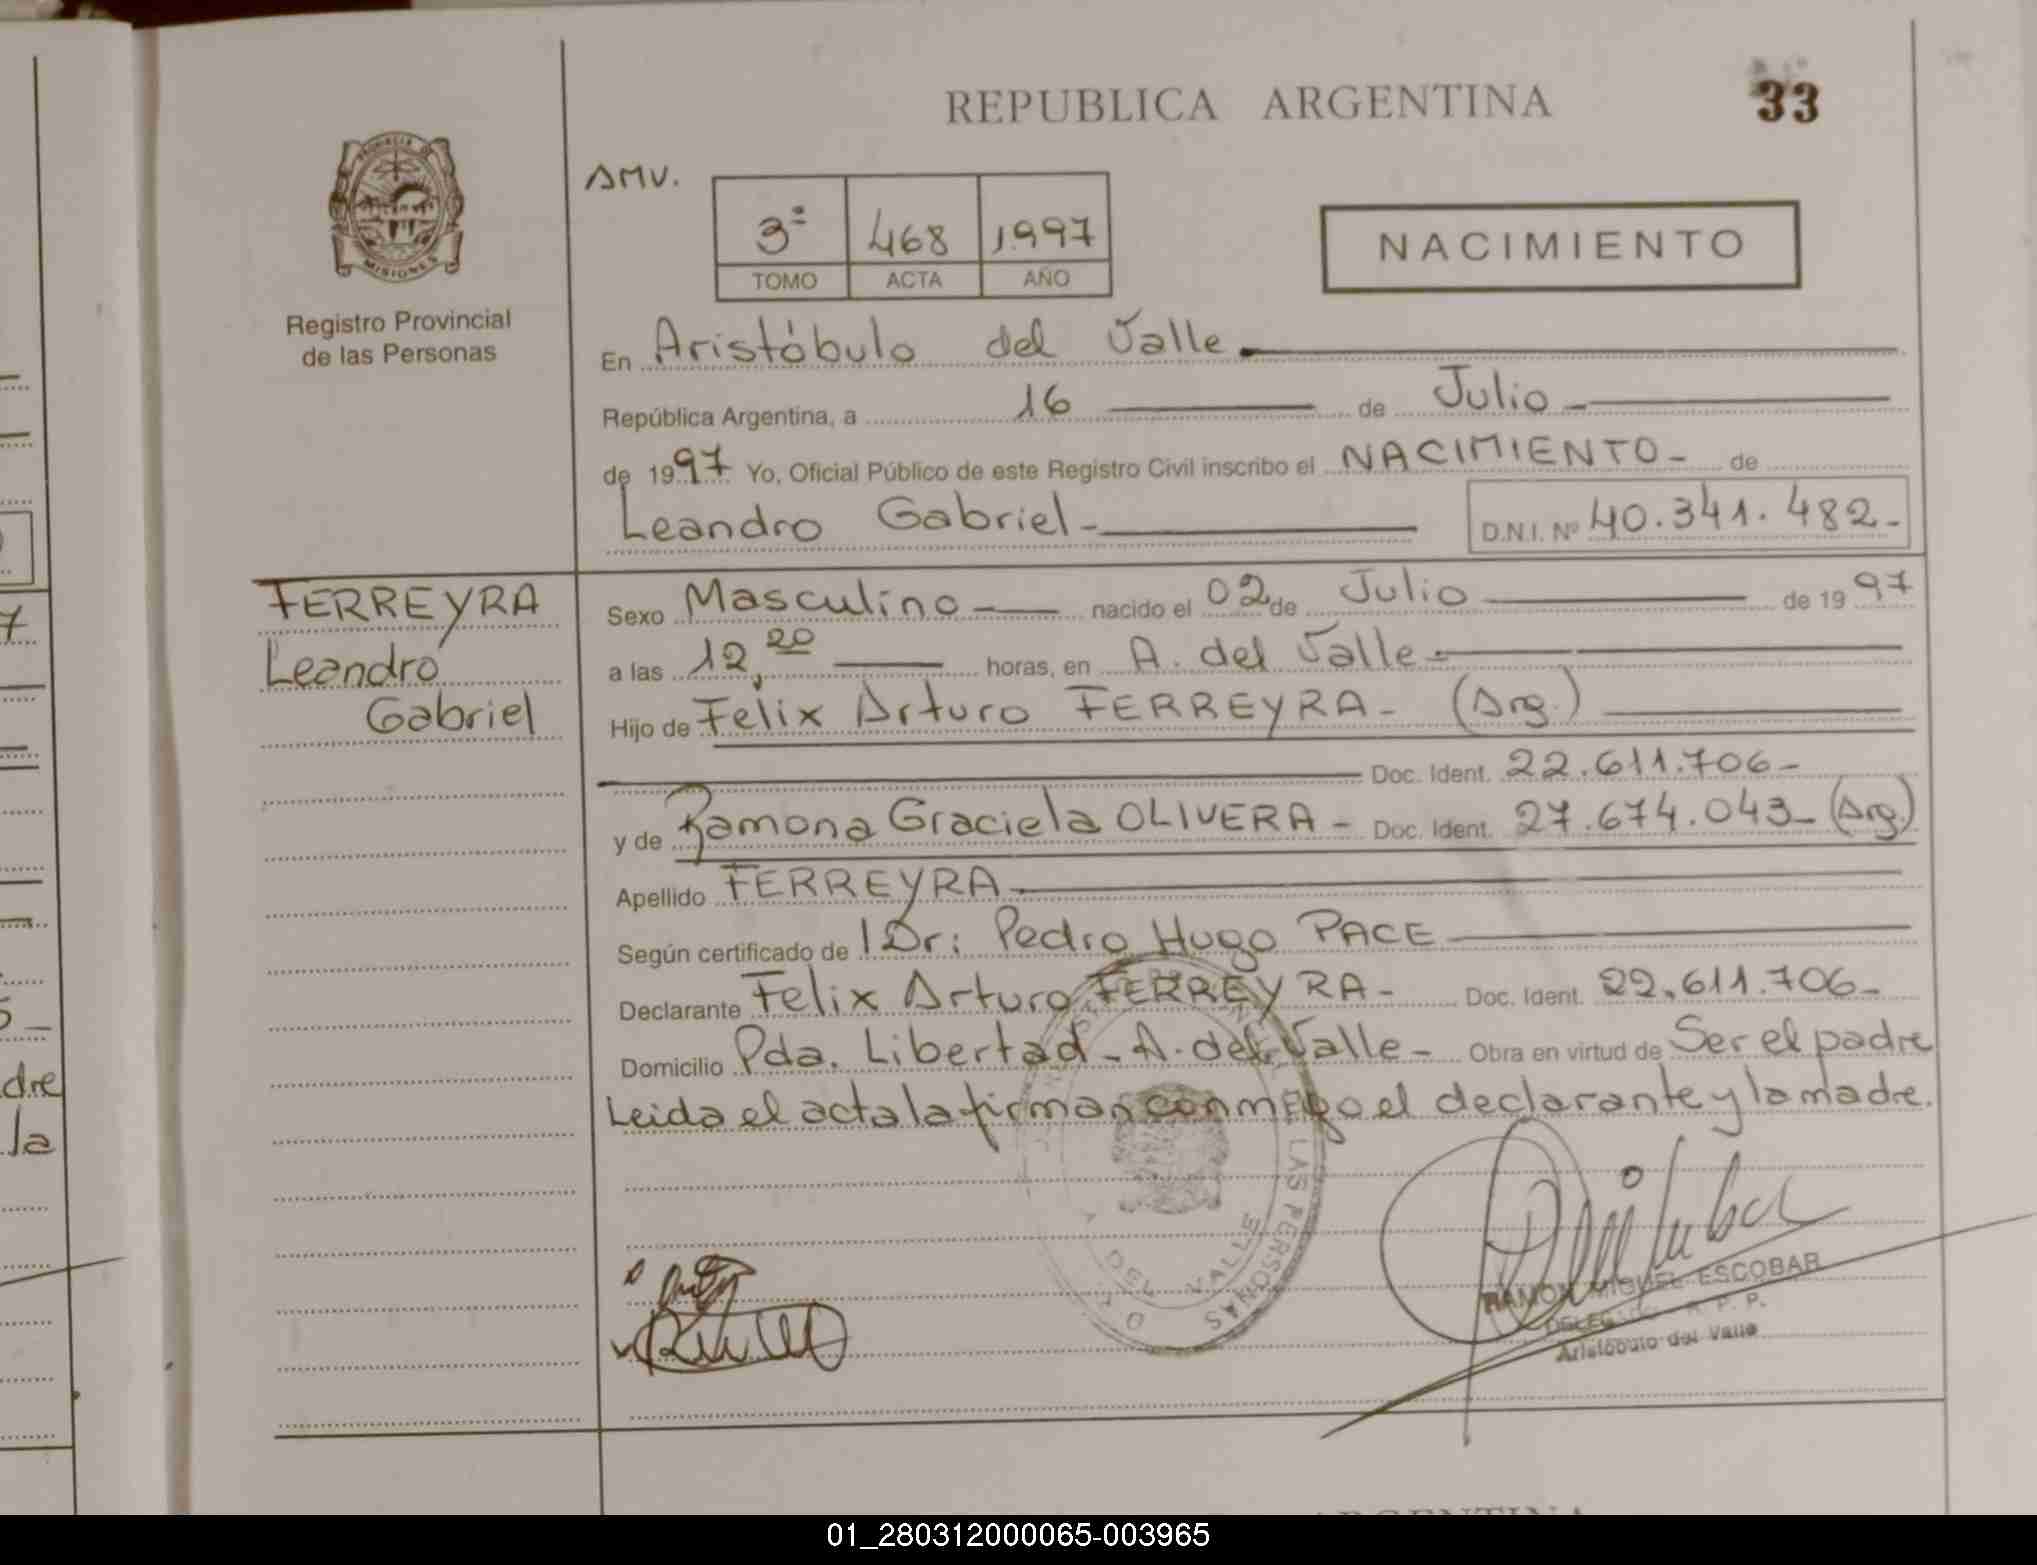 REPUBLICA ARGENTINA
33
PROVINCIA DE
MISIONES
Registro Provincial
de las Personas
AMV.
3º 468 1997
TOMO ACTA AÑO
NACIMIENTO
En Aristóbulo del Valle
República Argentina, a 16 de Julio
de 1997 Yo, Oficial Público de este Registro Civil inscribo el NACIMIENTO- de
Leandro Gabriel- D.N.I. Nº 40.341.482-
FERREYRA
Leandro
Gabriel
Sexo Masculino nacido el 02 de Julio de 1997
a las 12,20 horas, en A. del Valle-
Hijo de Felix Arturo FERREYRA- (Arg.)
Doc. Ident. 22.611.706-
y de Ramona Graciela OLIVERA- Doc. Ident. 27.674.043- (Arg.)
Apellido FERREYRA
Según certificado de 1Dr: Pedro Hugo PACE
Declarante Felix Arturo FERREYRA- Doc. Ident. 22.611.706-
Domicilio Pda. Libertad-A. del Valle- Obra en virtud de Ser el padre
Leida el acta la firman conmigo el declarante y la madre.
DE LAS PERSONAS
DEL VALLE
RAMON MIGUEL ESCOBAR
R. P. P.
Aristóbulo del Valle
7
5-
dre
la
ARGENTINA
01_280312000065-003965